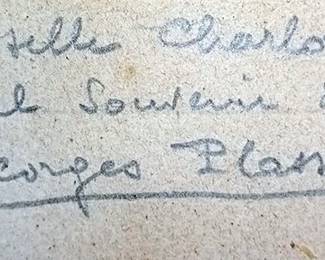 selle Charlo
l Souvenir
eorges Plass